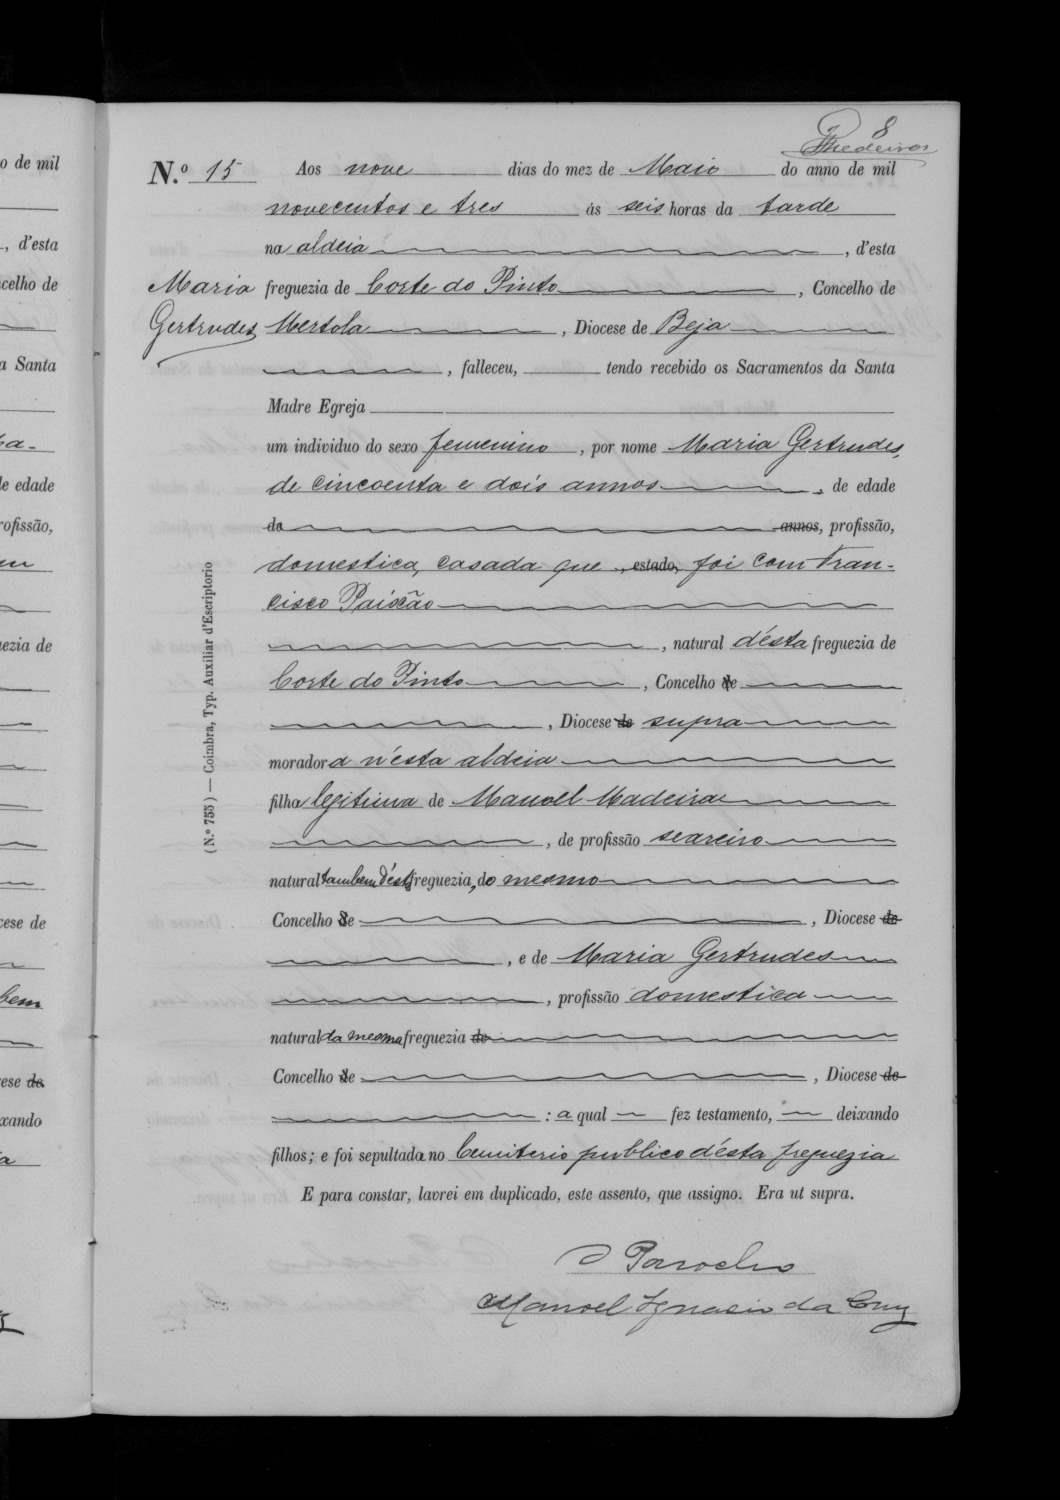 8
Medeiros
N.º 15 Aos nove dias do mez de Maio do anno de mil
novecentos e tres ás seis horas da tarde
na aldeia, d'esta
Maria freguezia de Corte do Pinto, Concelho de
Gertrudes Mertola, Diocese de Beja
, falleceu, tendo recebido os Sacramentos da Santa
Madre Egreja
um individuo do sexo femenino, por nome Maria Gertrudes,
de cincoenta e dois annos, de edade
de annos, profissão,
domestica, casada que, estado, foi com Fran-
cisco Paixão
, natural d'ésta freguezia de
Corte do Pinto, Concelho de
, Diocese de supra
moradora n'ésta aldeia
filha legitima de Manoel Madeira
, de profissão seareiro
natural tambem d'ésta freguezia, do mesmo
Concelho de, Diocese de
, e de Maria Gertrudes
, profissão domestica
natural da mesma freguezia de
Concelho de, Diocese de
: a qual fez testamento, deixando
filhos; e foi sepultada no Cemiterio publico d'ésta freguezia
E para constar, lavrei em duplicado, este assento, que assigno. Era ut supra.
O Parocho
Manoel Ignacio da Cruz
(N.º 755) — Coimbra, Typ. Auxiliar d'Escriptorio
o de mil
, d'esta
ncelho de
a Santa
de edade
rofissão,
uezia de
cese de
bem
ese de
xando